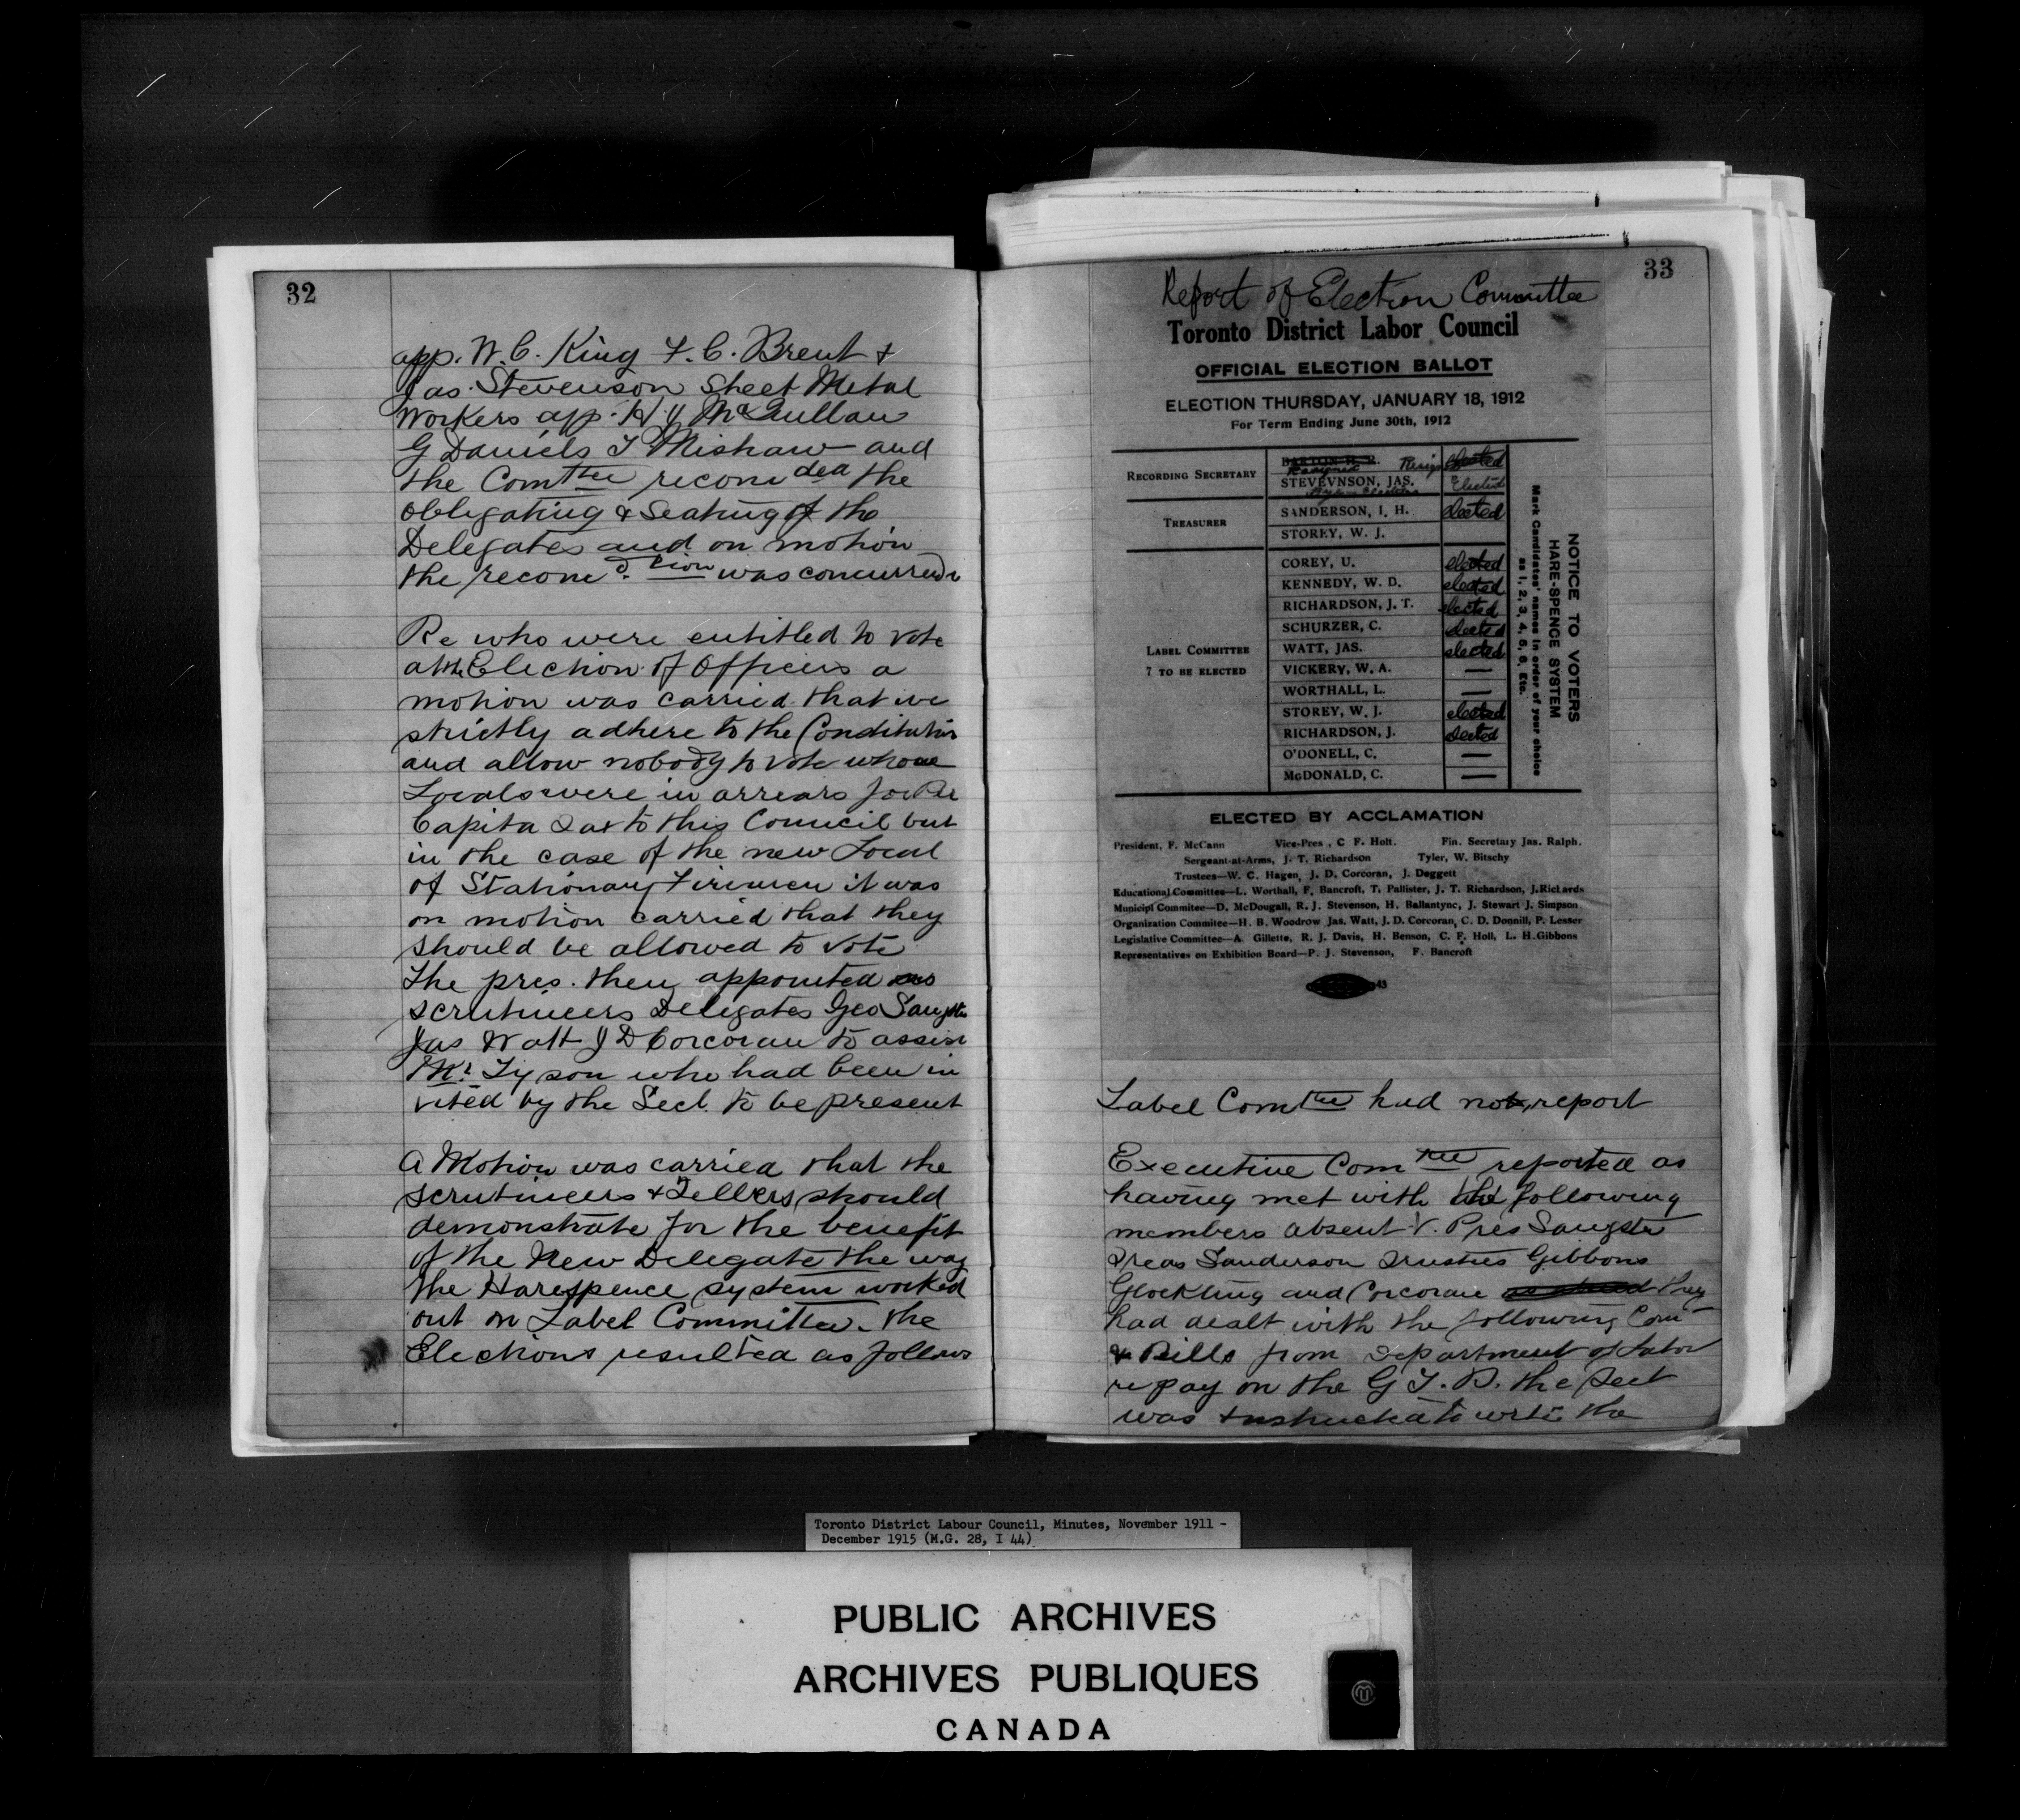 32
app. W. C. King F. C. Brent &
Jas. Stevenson Sheet Metal
Workers app. H. McQuillan
G Daniels T Mishaw and
the Comttee recomded the
obligating & Seating of the
Delegates and on motion
the recomd.tion was concurred in
Re who were entitled to vote
at the Election of Officers a
motion was carried that we
strictly adhere to the Constitution
and allow nobody to vote whose
Locals were in arrears for Per
Capita Tax to this Council but
in the case of the new Local
of Stationary Firemen it was
on motion carried that they
should be allowed to vote
The pres. then appointed as
scrutineers Delegates Geo Sangster
Jas Watt J D Corcoran to assist
Mr. Tyson who had been in
vited by the Sect. to be present
A Motion was carried that the
scrutineers & Tellers should
demonstrate for the benefit
of the New Delegate the way
the Harespence system worked
out on Label Committee. The
Elections resulted as follows
33
Report of Election Committee
Toronto District Labor Council
OFFICIAL ELECTION BALLOT
ELECTION THURSDAY, JANUARY 18, 1912
For Term Ending June 30th, 1912
RECORDING SECRETARY
BARTON H. B. Resign elected
Resigned
STEVEVNSON, JAS. Elected
TREASURER
SANDERSON, I. H. elected
STOREY, W. J.
LABEL COMMITTEE
7 TO BE ELECTED
COREY, U. elected
KENNEDY, W. D. elected
RICHARDSON, J. T. elected
SCHURZER, C. elected
WATT, JAS. elected
VICKERY, W. A. —
WORTHALL, L. —
STOREY, W. J. elected
RICHARDSON, J. elected
O'DONELL, C. —
McDONALD, C. —
NOTICE TO VOTERS
HARE-SPENCE SYSTEM
Mark Candidates' names in order of your choice
as 1, 2, 3, 4, 5, 6, Etc.
ELECTED BY ACCLAMATION
President, F. McCann Vice-Pres , C F. Holt. Fin. Secretary Jas. Ralph.
Sergeant-at-Arms, J. T. Richardson Tyler, W. Bitschy
Trustees—W. C. Hagen, J. D. Corcoran, J. Doggett
Educational Committee—L. Worthall, F. Bancroft, T. Pallister, J. T. Richardson, J. Richards
Municipl Commitee—D. McDougall, R. J. Stevenson, H. Ballantyne, J. Stewart J. Simpson
Organization Commitee—H. B. Woodrow Jas. Watt, J. D. Corcoran, C. D. Donnill, P. Lesser
Legislative Committee—A. Gillette, R. J. Davis, H. Benson, C. F. Holl, L. H. Gibbons
Representatives on Exhibition Board—P. J. Stevenson, F. Bancroft
43
Label Comttee had no report
Executive Comttee reported as
having met with the following
members absent V. Pres Sangster
Treas Sanderson Trustees Gibbons
Glockling and Corcoran they
had dealt with the following Com
& Bills from Department of Labor
re pay on the G T. P. the Sect
was instructed to write the
Toronto District Labour Council, Minutes, November 1911 -
December 1915 (M.G. 28, I 44)
PUBLIC ARCHIVES
ARCHIVES PUBLIQUES
CANADA